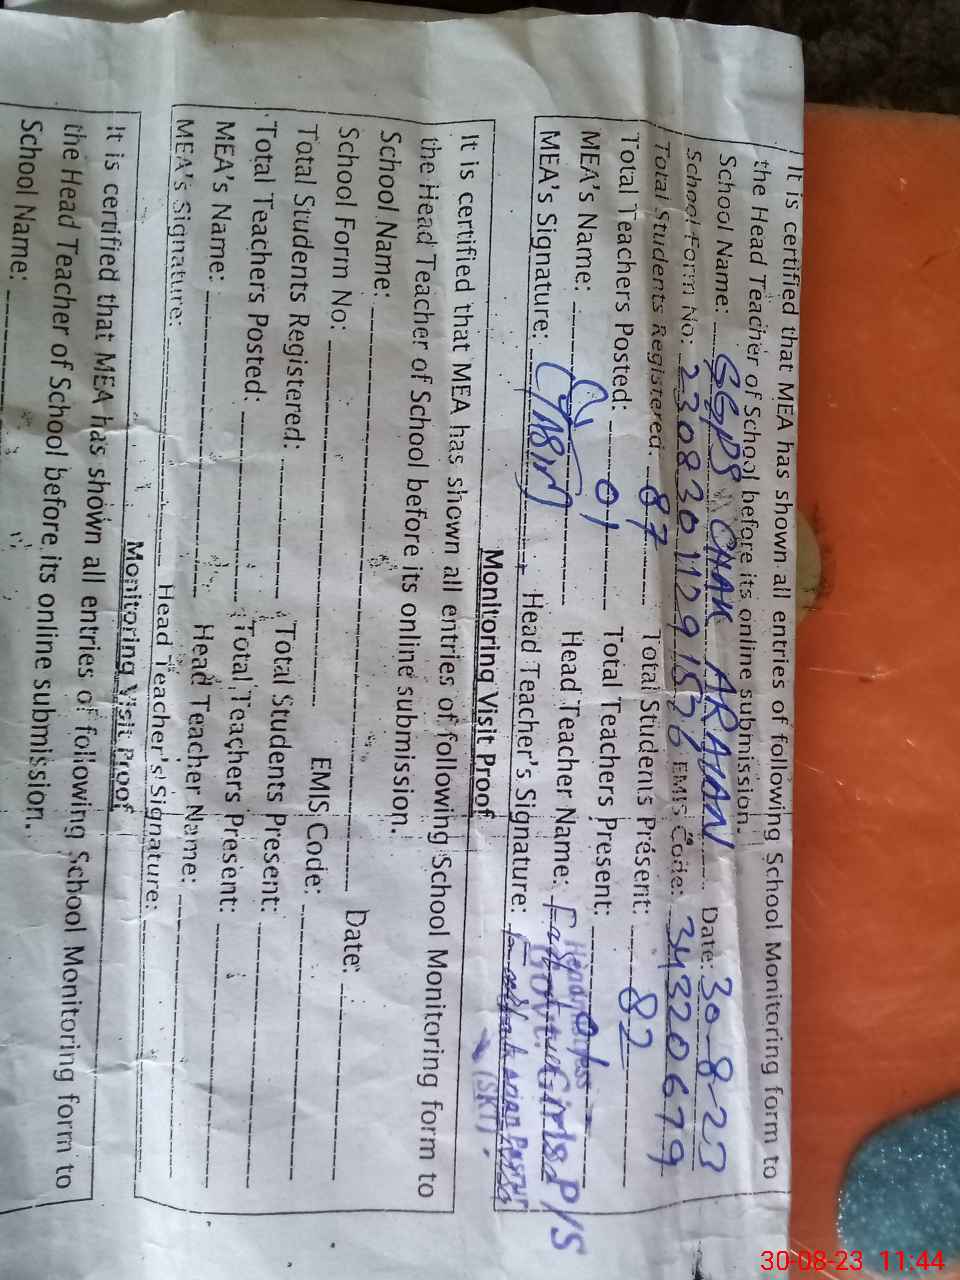 It is certified that MEA has shown all entries of following School Monitoring form to
the Head Teacher of School before its online submission.
School Name: GGPS CHAK ARAIAN Date: 30-8-23
School Form No: EMIS Code: 34320679
Total Students Registered: 87 Total Students Present: 82
Total Teachers Posted: 01 Total Teachers Present: 01
MEA's Name: Head Teacher Name:
MEA's Signature: Head Teacher's Signature:
Govt. Girls P/S
(SKT).
Monitoring Visit Proof
It is certified that MEA has shown all entries of following School Monitoring form to
the Head Teacher of School before its online submission.
School Name: Date:
School Form No: EMIS Code:
Total Students Registered: Total Students Present:
Total Teachers Posted: Total Teachers Present:
MEA's Name: Head Teacher Name:
MEA's Signature: Head Teacher's Signature:
Monitoring Visit Proof
It is certified that MEA has shown all entries of following School Monitoring form to
the Head Teacher of School before its online submission.
School Name:
30-08-23 11:44